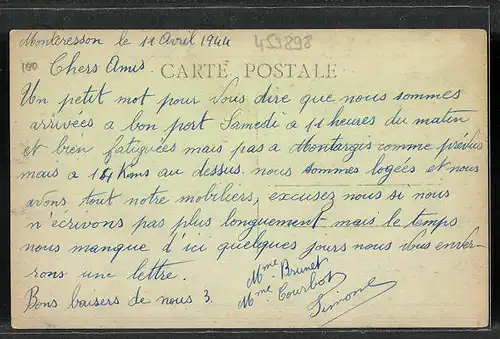 Montcresson le 11 Avril 1944
453898
100
Chers Amis
CARTE POSTALE
Un petit mot pour vous dire que nous sommes
arrivées a bon port Samedi a 11 heures du matin
et bien fatiguées mais pas a Montargis comme prévus
mais a 14 Kms au dessus. nous sommes logées et nous
avons tout notre mobiliers, excusez nous si nous
n'écrivons pas plus longuement mais le temps
nous manque d'ici quelques jours nous vous enver-
rons une lettre.
Bons baisers de nous 3.
Mme Brunet
Mme Courbot
Simone